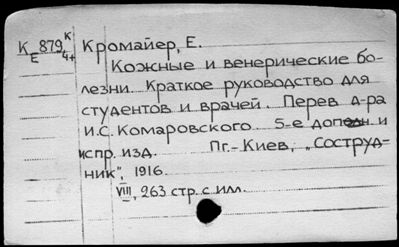 К 879 К Кромайер, Е.
Е 4+
Кожные и венерические бо-
лезни. Краткое руководство для
студентов и врачей. Перев д-ра
И.С. Комаровского 5-е дополн. и
испр. изд. Пг.-Киев, „Сотруд-
ник", 1916.
VIII, 263 стр. с илл.